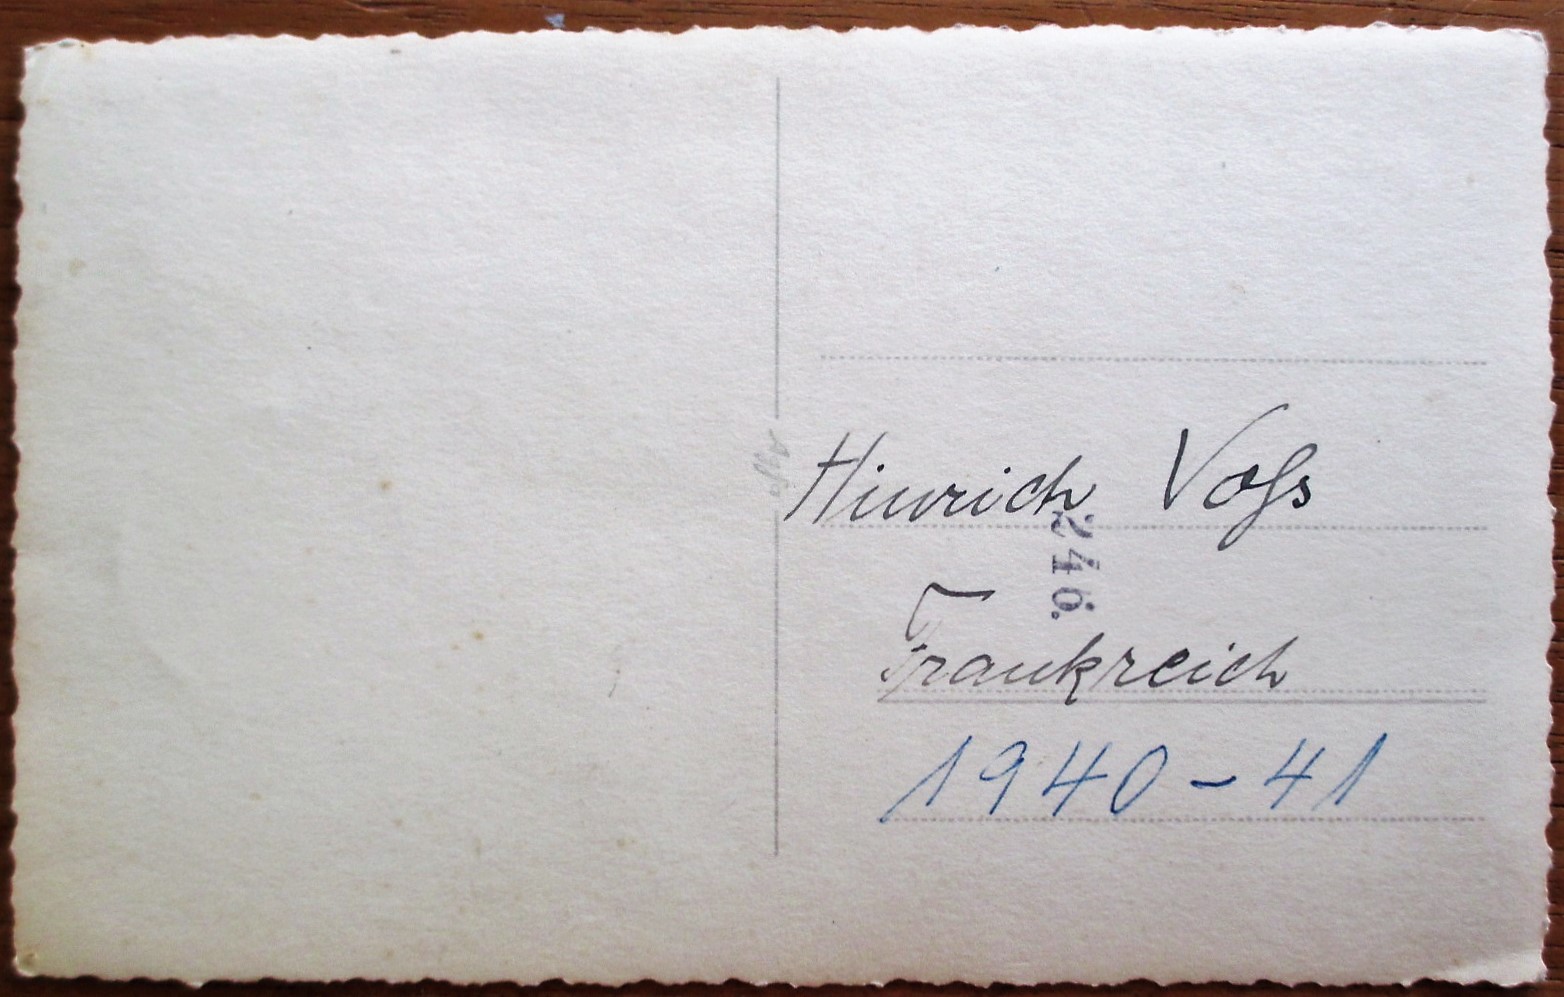 Agfa
Hinrich Voß
246.
Frankreich
1940 - 41